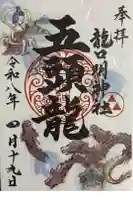 奉拝
龍口明神社
五頭龍
令和八年
四月十九日